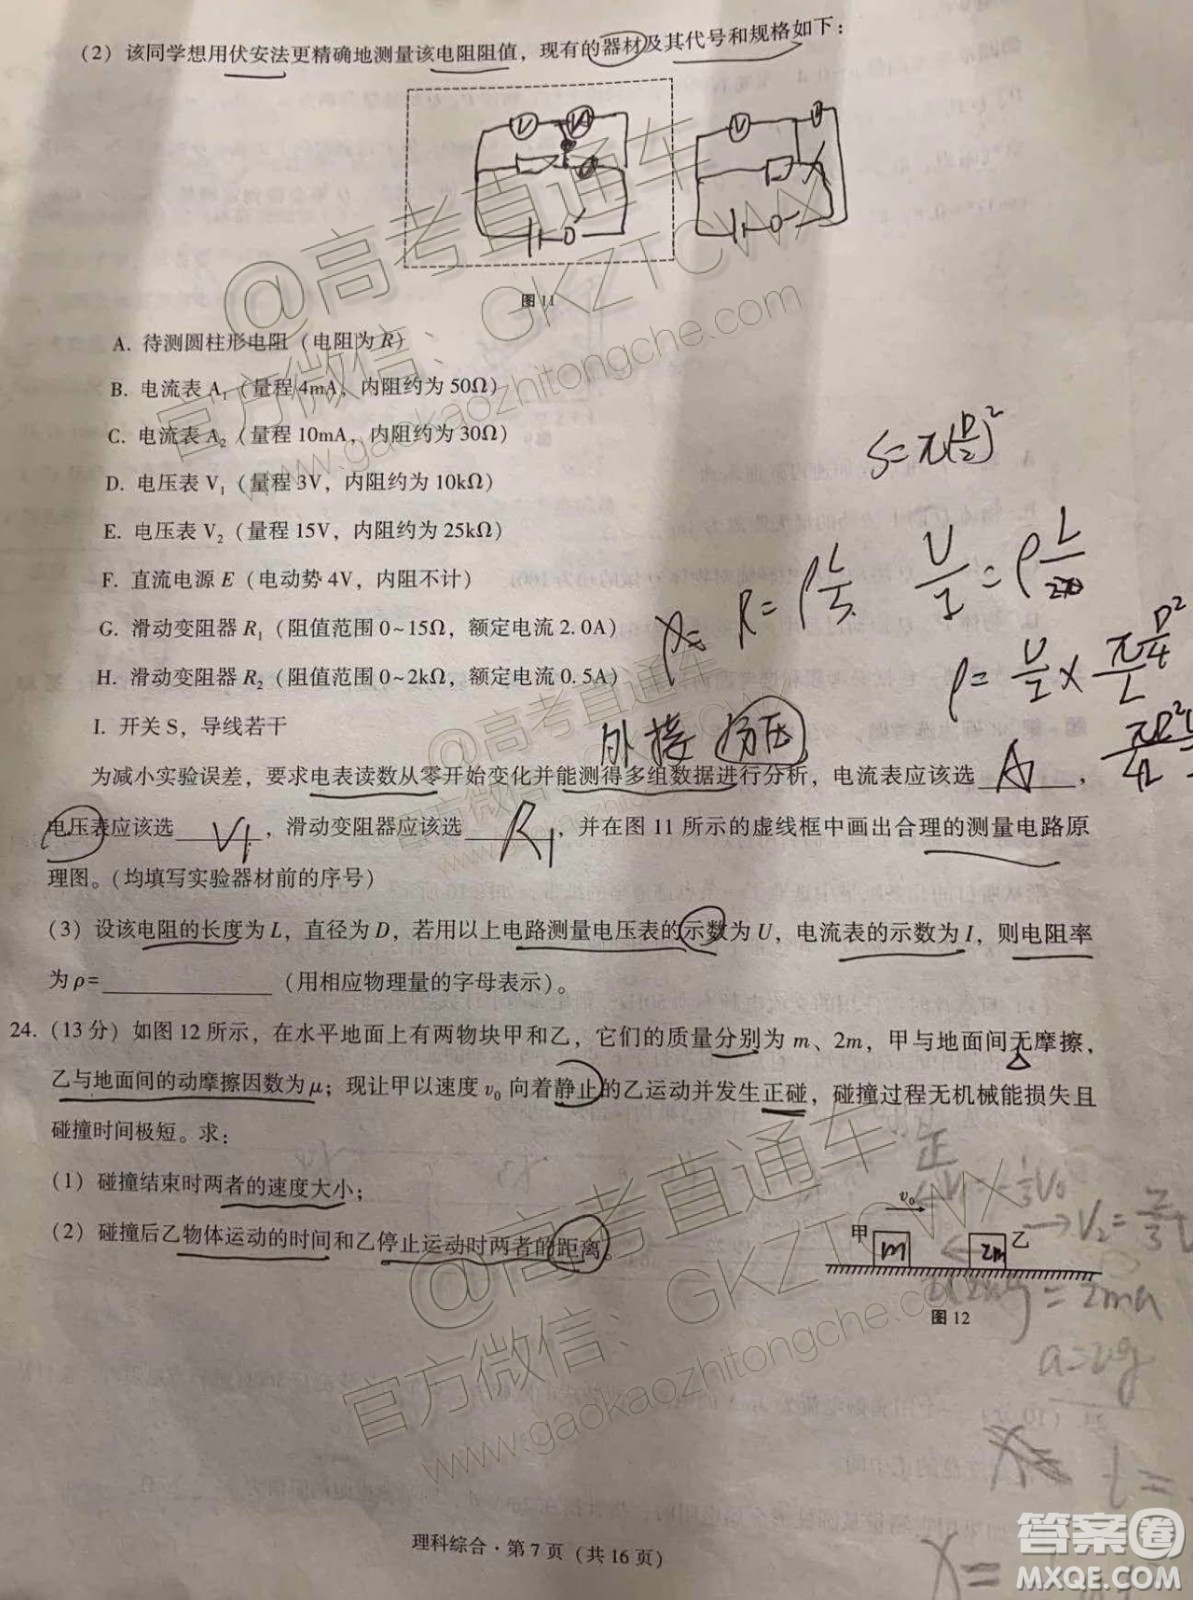 (2) 该同学想用伏安法更精确地测量该电阻阻值，现有的器材及其代号和规格如下：
图 11
A. 待测圆柱形电阻（电阻为 R）
B. 电流表 A₁（量程 4mA，内阻约为 50Ω）
C. 电流表 A₂（量程 10mA，内阻约为 30Ω）
D. 电压表 V₁（量程 3V，内阻约为 10kΩ）
E. 电压表 V₂（量程 15V，内阻约为 25kΩ）
F. 直流电源 E（电动势 4V，内阻不计）
G. 滑动变阻器 R₁（阻值范围 0~15Ω，额定电流 2.0A）
H. 滑动变阻器 R₂（阻值范围 0~2kΩ，额定电流 0.5A）
I. 开关 S，导线若干
S=π(D/2)²
R=ρ L/S
U/I=ρ
ρ= U/I × π D²/4 / L
外接 分压
为减小实验误差，要求电表读数从零开始变化并能测得多组数据进行分析，电流表应该选 ________，
电压表应该选 V₁，滑动变阻器应该选 R₁，并在图 11 所示的虚线框中画出合理的测量电路原
理图。（均填写实验器材前的序号）
(3) 设该电阻的长度为 L，直径为 D，若用以上电路测量电压表的示数为 U，电流表的示数为 I，则电阻率
为 ρ=________（用相应物理量的字母表示）。
24. (13 分) 如图 12 所示，在水平地面上有两物块甲和乙，它们的质量分别为 m、2m，甲与地面间无摩擦，
乙与地面间的动摩擦因数为 μ；现让甲以速度 v₀ 向着静止的乙运动并发生正碰，碰撞过程无机械能损失且
碰撞时间极短。求：
(1) 碰撞结束时两者的速度大小；
(2) 碰撞后乙物体运动的时间和乙停止运动时两者的距离。
正
v₀
甲 m 2m 乙
图 12
理科综合·第 7 页（共 16 页）
@高考直通车
官方微信：GKZTCWX
www.gaokaozhitongche.com
@高考直通车
官方微信：GKZTCWX
www.gaokaozhitongche.com
@高考直通车
官方微信：GKZTCWX
www.gaokaozhitongche.com
答案圈
MXQE.COM